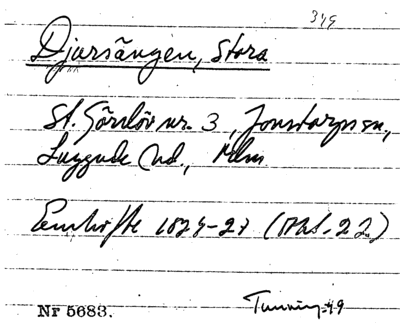 Djursängen, Stora
St. Görslöv nr. 3, Jonstorps sn,
Luggude hd., Mlm
Enskifte 1824-27 (Akt. 22)
Nr 5683.